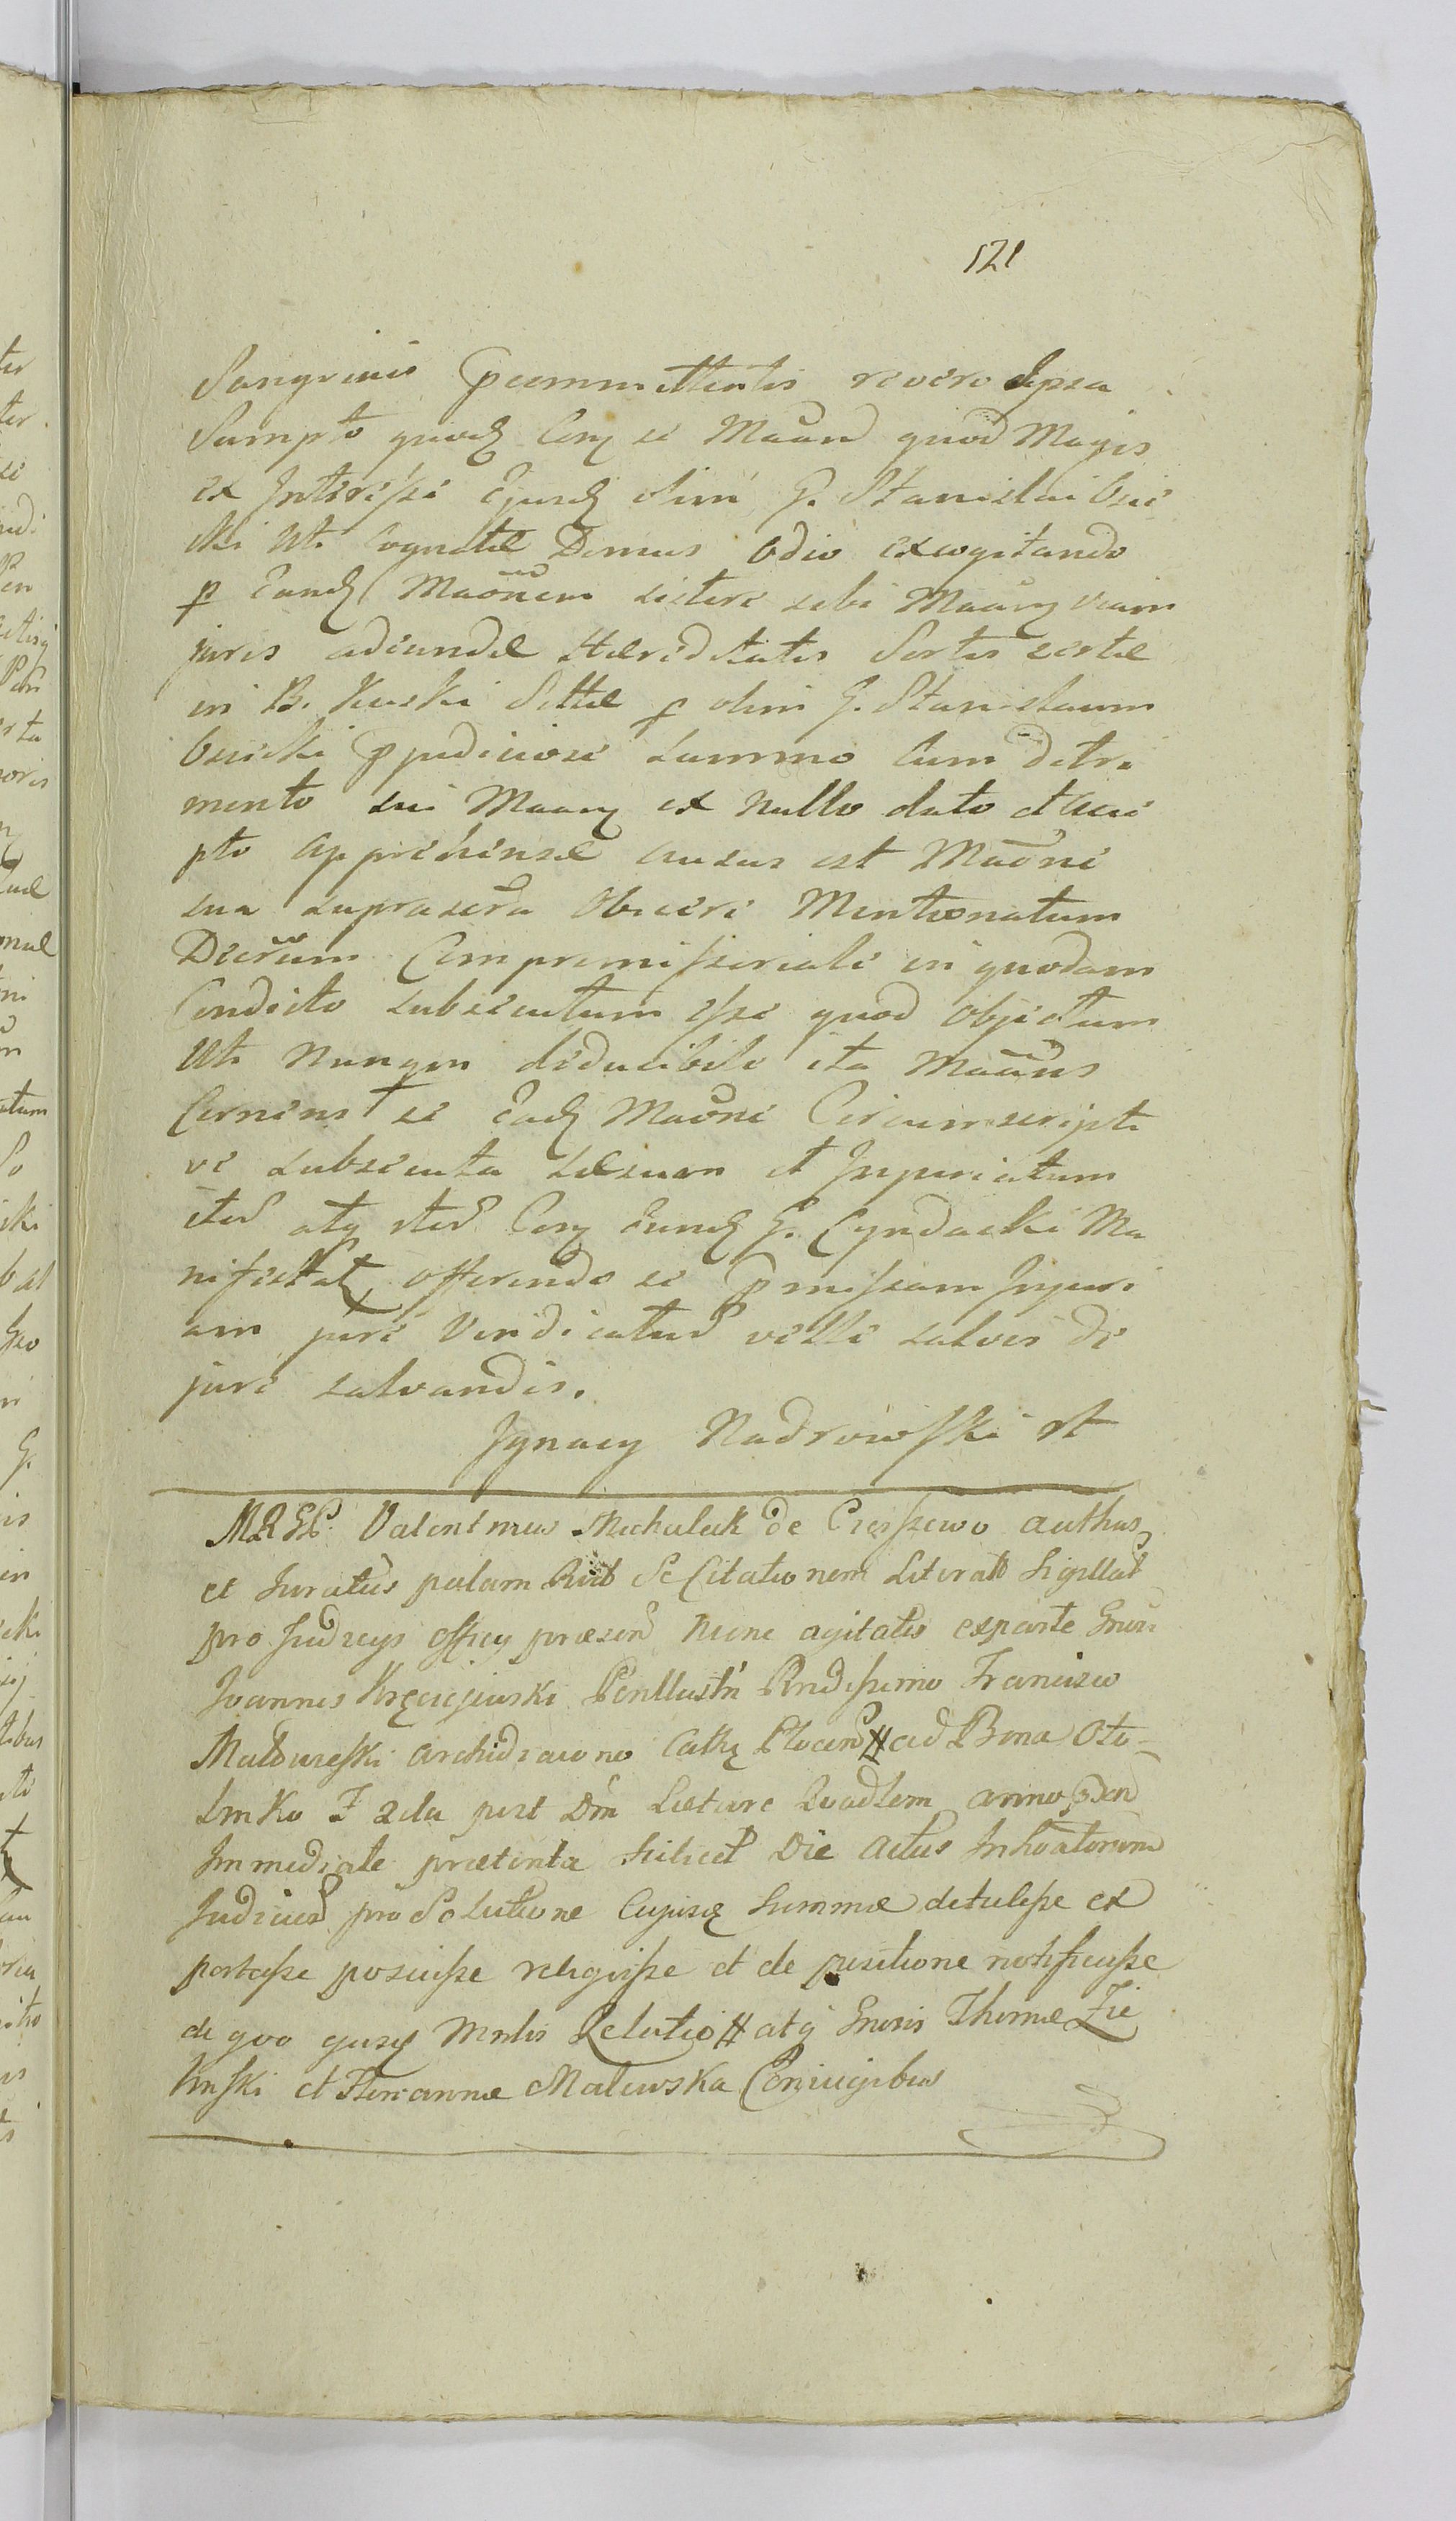 121
Sangvinis pcommittentis revero Ipsa
Sumpto quodq Conq se Maand quod Magis
ex Interesse Ejusdq olim G. Stanislai Osie
cki Uti cognatae Domus odio excogitando
p Eandq Maõnem sistere sibi Maanq viam
juris adeundae Haereditatis Sortis certae
in B. Kuski Sittae p olim G. Stanislaum
Osiecki ppudiciose summo cum detri
mento sui Maanq ex nullo dato et acce
pto apprehensae ausus est Maõne
sua suprascrta Obicere Mentionatum
Decretum Compromissoriale in quodam
Condicto subsecutum esse quod objectum
Uti nunqm deducibile ita Maãns
Cernens se Eadq Maõne Circumscripti
ve subsecuta Laesum et Injuriatum
iterd atq iterd Conq Eundq G. Cyndacki Ma
nifestat offerendo se pmissam Injuri
am jure Vindicaturd velle salvis de
jure salvandis.
Ignacy Nadrowski mt
MRGL. Valentinus Michalak de Cieszewo authus
et Juratus palam Rivit Se Citationem Literatt Sigillat
pro Judicys officy praesend nunc agitatis exparte Gnosi
Joannis Kręciejewski Penllustri Rndissimo Francisco
Malowieski archidiacono Cathq Plocend # ad Bona Oto-
lmko F 2da post Dm Laetare Quadlem anno pden
Immediate praeterita scilicet Die actus Inhoatorum
Judiciord pro Solutione Cujusq Summae detulisse ex
portasse posuisse religisse et de positione notificasse
de quo ejusq Mnlis Relatio # atq Gnosis Thomae Zie
linski et Marianna Malewska Conjugibus